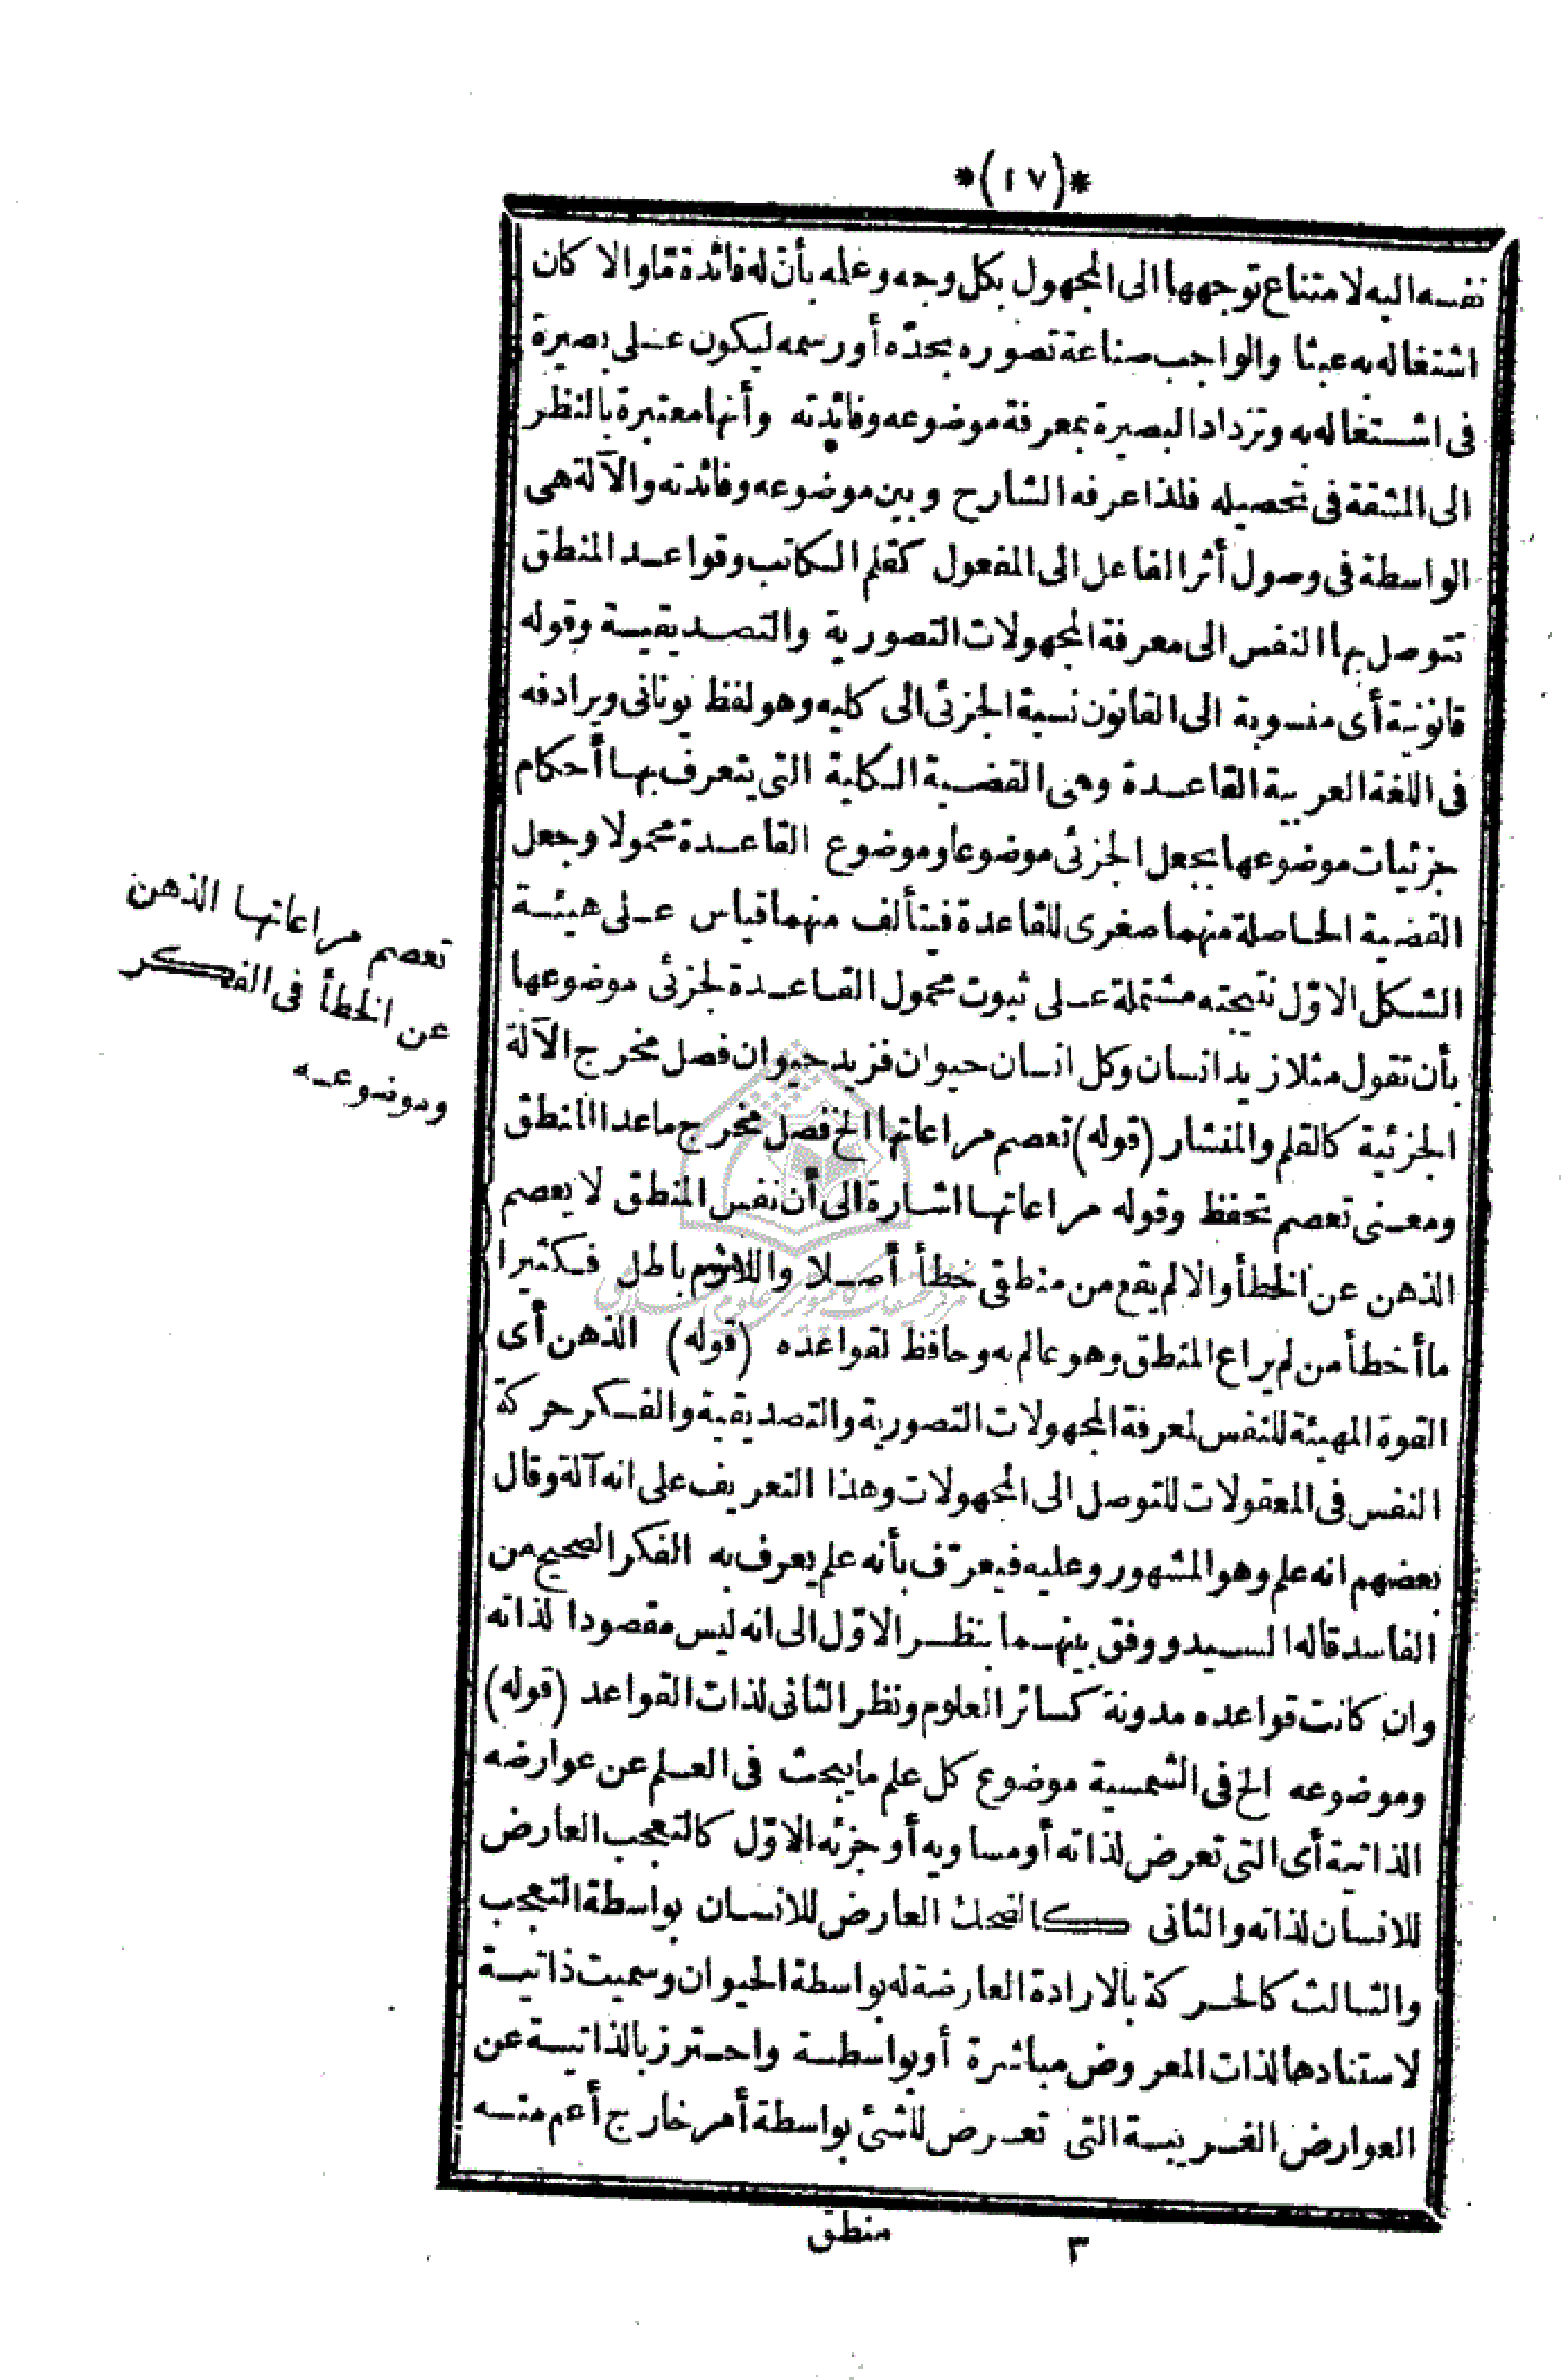 *(١٧)*
نفسه اليه لامتناع توجهها الى المجهول بكل وجه وعلمه بأنّ له فائدة مّا والا كان
اشتغاله به عبثا والواجب صناعة تصوره بحدّه أو رسمه ليكون على بصيرة
فى اشتغاله به وتزداد البصيرة بمعرفة موضوعه وفائدته وأنها معتبرة بالنظر
الى المشقة فى تحصيله فلذا عرفه الشارح وبين موضوعه وفائدته والآلة هى
الواسطة فى وصول أثر الفاعل الى المفعول كقلم الكاتب وقواعد المنطق
تتوصل بها النفس الى معرفة المجهولات التصورية والتصديقية وقوله
قانونية أى منسوبة الى القانون نسبة الجزئى الى كليه وهو لفظ يونانى ويرادفه
فى اللغة العربية القاعدة وهى القضية الكلية التى يتعرف بها أحكام
جزئيات موضوعها بجعل الجزئى موضوعا وموضوع القاعدة محمولا وجعل
القضية الحاصلة منهما صغرى للقاعدة فيتألف منهما قياس على هيئة
الشكل الاوّل نتيجته مشتملة على ثبوت محمول القاعدة لجزئى موضوعها
بأن تقول مثلا زيد انسان وكل انسان حيوان فزيد حيوان فصل مخرج الآلة
الجزئية كالقلم والمنشار (قوله) تعصم مراعاتها الخ فصل مخرج ماعدا المنطق
ومعنى تعصم تحفظ وقوله مراعاتها اشارة الى أن نفس المنطق لا يعصم
الذهن عن الخطأ والا لم يقع من منطقى خطأ أصلا واللازم باطل فكثيرا
ما أخطأ من لم يراع المنطق وهو عالم به وحافظ لقواعده (قوله) الذهن أى
القوة المهيئة للنفس لمعرفة المجهولات التصورية والتصديقية والفكر حركة
النفس فى المعقولات للتوصل الى المجهولات وهذا التعريف على انه آلة وقال
بعضهم انه علم وهو المشهور وعليه فيعرّف بأنه علم يعرف به الفكر الصحيح من
الفاسد قاله السيد ووفق بينهما بنظر الاوّل الى انه ليس مقصودا لذاته
وان كانت قواعده مدونة كسائر العلوم ونظر الثانى لذات القواعد (قوله)
وموضوعه الخ فى الشمسية موضوع كل علم ما يبحث فى العلم عن عوارضه
الذاتية أى التى تعرض لذاته أو مساويه أو جزئه الاوّل كالتعجب العارض
للانسان لذاته والثانى كالضحك العارض للانسان بواسطة التعجب
والثالث كالحركة بالارادة العارضة له بواسطة الحيوان وسميت ذاتية
لاستنادها لذات المعروض مباشرة أو بواسطة واحترز بالذاتية عن
العوارض الغريبة التى تعرض للشئ بواسطة أمر خارج أعم منه
٣ منطق
تعصم مراعاتها الذهن
عن الخطأ فى الفكر
وموضوعه